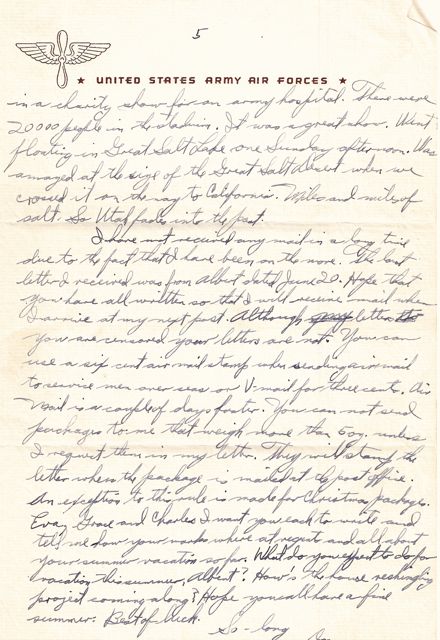 5
★ UNITED STATES ARMY AIR FORCES ★
in a charity show for an army hospital. There were
20000 people in the stadium. It was a great show. Went
floating in Great Salt Lake one Sunday afternoon. Was
amazed at the size of the Great Salt Desert when we
crossed it on the way to California. Miles and miles of
salt. So Utah fades into the past.
I have not received any mail in a long time
due to the fact that I have been on the move. The last
letter I received was from Albert dated June 20. Hope that
you have all written so that I will receive mail when
I arrive at my next post. Although letters to
you are censored your letters are not. You can
use a six cent air mail stamp when sending air mail
to service men over seas or V-mail for three cents. Air
Mail is a couple of days faster. You can not send
packages to me that weigh more than 5 oz. unless
I request them in my letter. They will stamp the
letter when the package is mailed at the post office.
An exception to this rule is made for Christmas packages.
Evan, Grace and Charles I want you each to write and
tell me how your marks were at regents and all about
your summer vacation so far. What do you expect to do for
vacation this summer, Albert? How's the house reshingling
project coming along? Hope you all have a fine
summer. Best of luck.
So-long